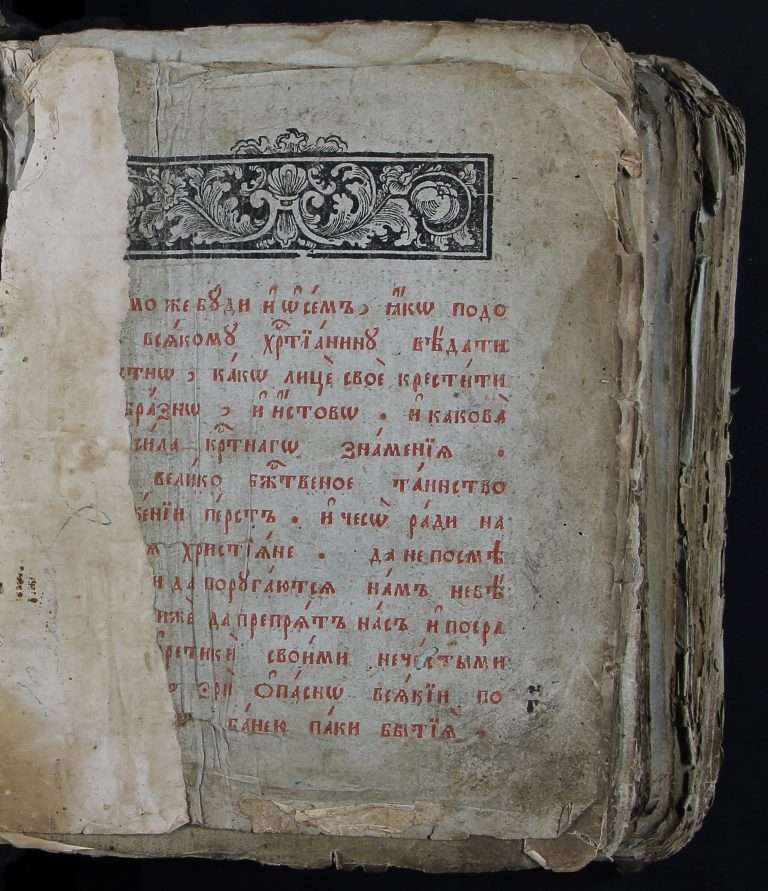 мо же бꙋ́ди и҆ ѡ҆ се́мъ, ꙗ҆́кѡ подо
всѧ́комꙋ хр҃тїа́нинꙋ вѣ́дати
ка́кѡ лицѐ своѐ крести́ти
и҆ и҆́стовѡ. и҆ какова̀
си́ла кр҃тнагѡ зна́менїѧ.
вели́ко бж҃твеное та́инство
пе́рстъ. и҆ чесѡ̀ ра́ди на
христїѧ́не. да не посмѣ
и да порꙋга́ютсѧ на́мъ невѣ́
да препрѧ́тъ на́съ и҆ посра
свои́ми нечи́стыми
зрѝ ѻ҆па́снѡ всѧ́кїй по
ба́нею па́ки бытїѧ̀.